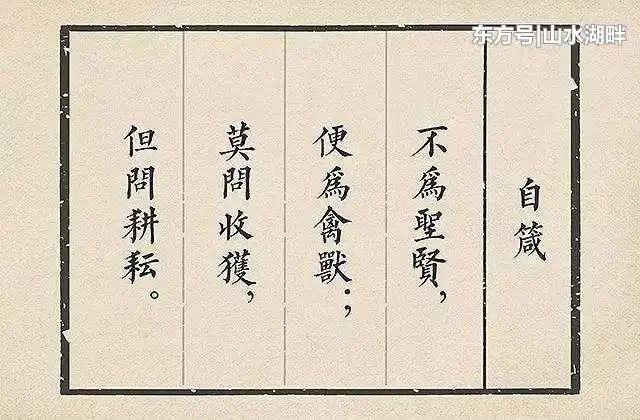 东方号|山水湖畔
自箴
不爲聖賢，
便爲禽獸；
莫問收獲，
但問耕耘。